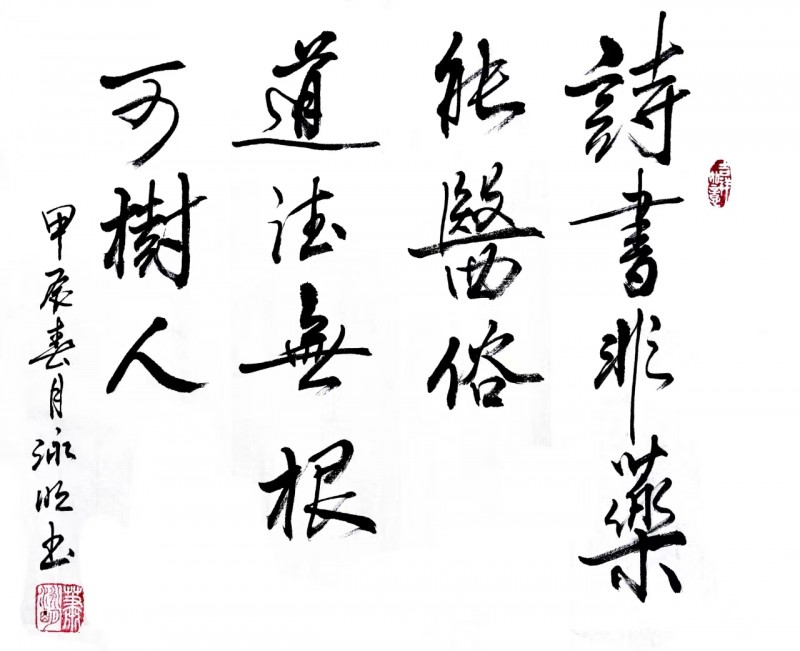 詩書非藥
能醫俗
道德無根
可樹人
甲辰春月泳明书